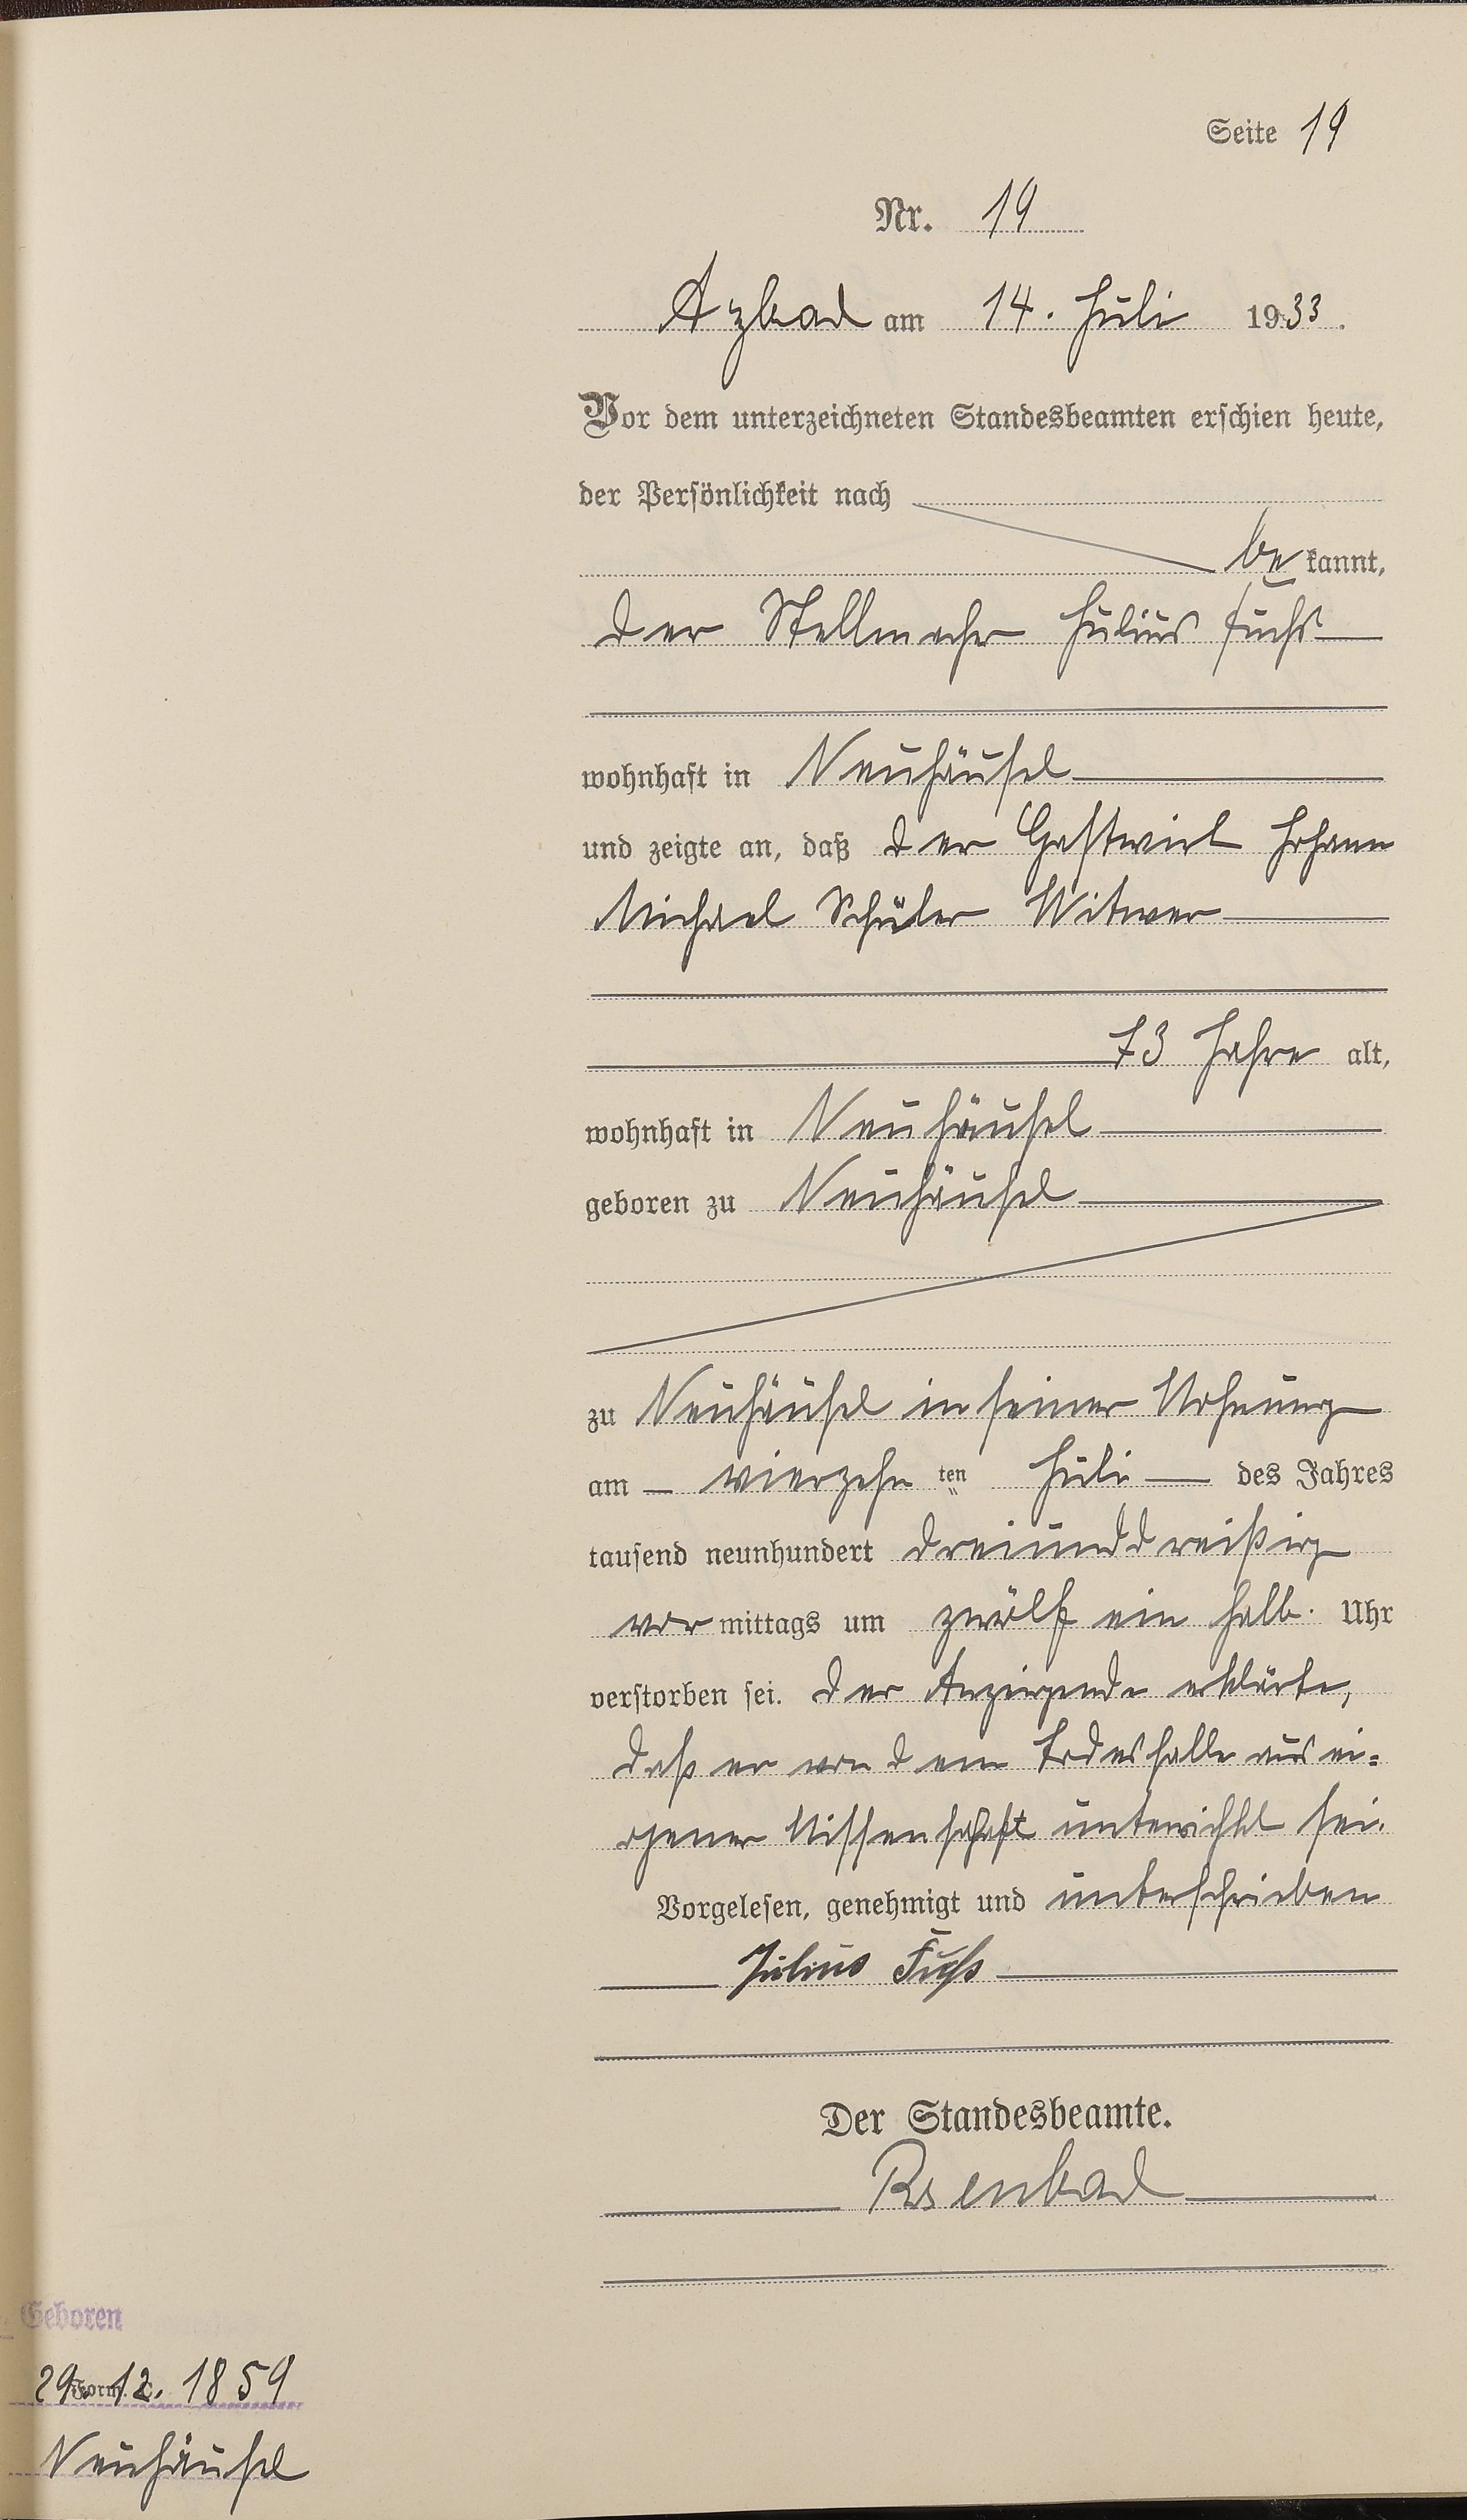 Seite 19
Nr. 19
Arzbach am 14. Juli 1933.
Vor dem unterzeichneten Standesbeamten erschien heute,
der Persönlichkeit nach
be kannt,
der Stellmacher Julius Fuchs
wohnhaft in Neuhäusel
und zeigte an, daß der Gastwirt Johann
Michael Schüler Witwer
73 Jahre alt,
wohnhaft in Neuhäusel
geboren zu Neuhäusel
zu Neuhäusel in seiner Wohnung
am vierzehn ten Juli des Jahres
tausend neunhundert dreiunddreißig
vor mittags um zwölf ein halb Uhr
verstorben sei. Der Anzeigende erklärte,
daß er von dem Todesfalle aus ei=
gener Wissenschaft unterrichtet sei.
Vorgelesen, genehmigt und unterschrieben
Julius Fuchs
Der Standesbeamte.
Geboren
29. 12. 1859
Neuhäusel